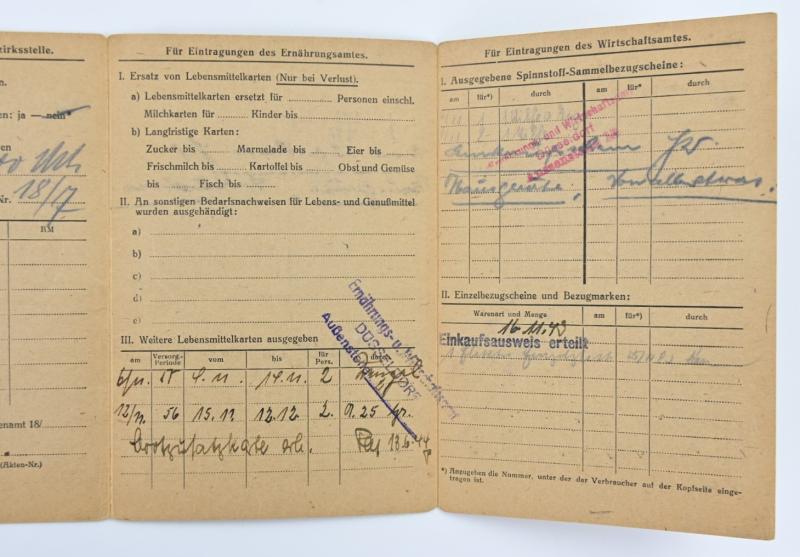 zirksstelle.
n.
en: ja — nein*
en
Nr. 18/7
RM
enamt 18/
(Akten-Nr.)
Für Eintragungen des Ernährungsamtes.
I. Ersatz von Lebensmittelkarten (Nur bei Verlust).
a) Lebensmittelkarten ersetzt für ........... Personen einschl.
Milchkarten für ........... Kinder bis ...........
b) Langfristige Karten:
Zucker bis ........... Marmelade bis ........... Eier bis ...........
Frischmilch bis ........... Kartoffel bis ........... Obst und Gemüse
bis ........... Fisch bis ...........
II. An sonstigen Bedarfsnachweisen für Lebens- und Genußmittel
wurden ausgehändigt:
a)
b)
c)
d)
e)
III. Weitere Lebensmittelkarten ausgegeben
am Versorg.-Periode vom bis für Pers. durch
4.11. 14.11. 2
12/11 56 15.11 12.12. 2. 25
Brotzusatzkarte erh. 13.6.44
Ernährungs- u.
DÜSSELDORF
Außenstelle
Für Eintragungen des Wirtschaftsamtes.
I. Ausgegebene Spinnstoff-Sammelbezugscheine:
am für*) durch am für*) durch
Ernährungs- und Wirtschaftsamt
Düsseldorf
Außenstelle
Hausgeräte,
II. Einzelbezugscheine und Bezugmarken:
Warenart und Menge am für*) durch
16.11.43
Einkaufsausweis erteilt
*) Anzugeben die Nummer, unter der der Verbraucher auf der Kopfseite einge-
tragen ist.